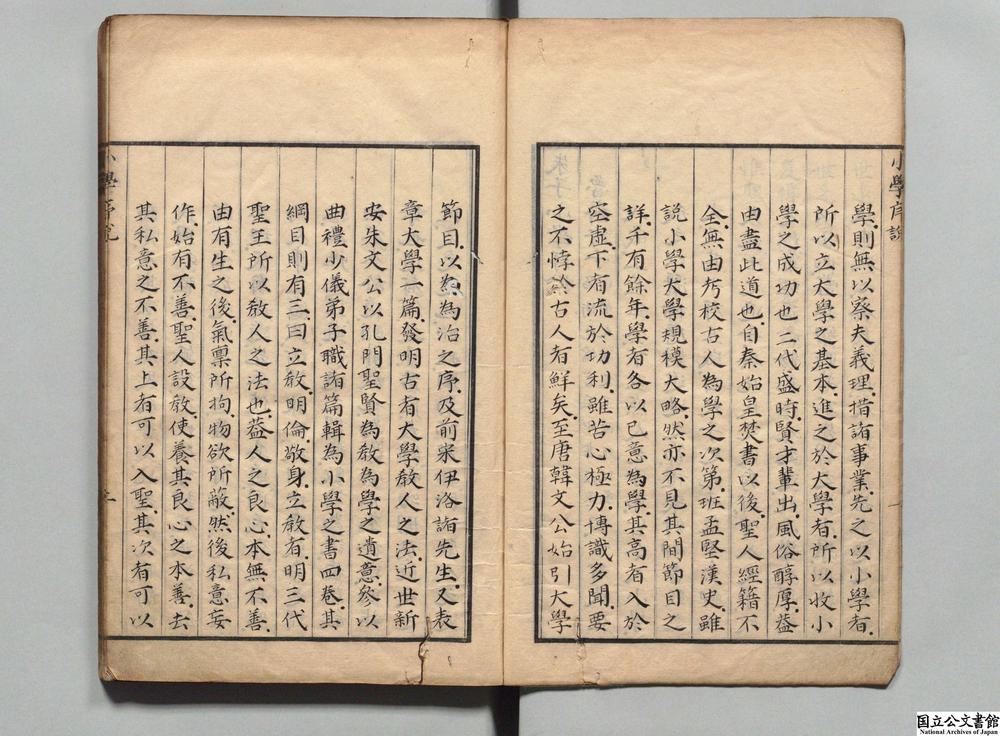 學則無以察夫義理措諸事業先之以小學者
所以立大學之基本進之於大學者所以收小
學之成功也二代盛時賢才輩出風俗醇厚葢
由盡此道也自秦始皇焚書以後聖人經籍不
全無由考校古人為學之次第班孟堅漢史雖
說小學大學規模大略然亦不見其間節目之
詳千有餘年學者各以已意為學其高者入於
空虛下者流於功利雖苦心極力博識多聞要
之不悖於古人者鮮矣至唐韓文公始引大學
節目以為為治之序及前宋伊洛諸先生又表
章大學一篇發明古者大學教人之法近世新
安朱文公以孔門聖賢為教為學之遺意參以
曲禮少儀弟子職諸篇輯為小學之書四卷其
綱目則有三曰立教明倫敬身立教者明三代
聖王所以教人之法也葢人之良心本無不善
由有生之後氣禀所拘物欲所蔽然後私意妄
作始有不善聖人設教使養其良心之本善去
其私意之不善其上者可以入聖其次者可以
小學序說
国立公文書館
National Archives of Japan